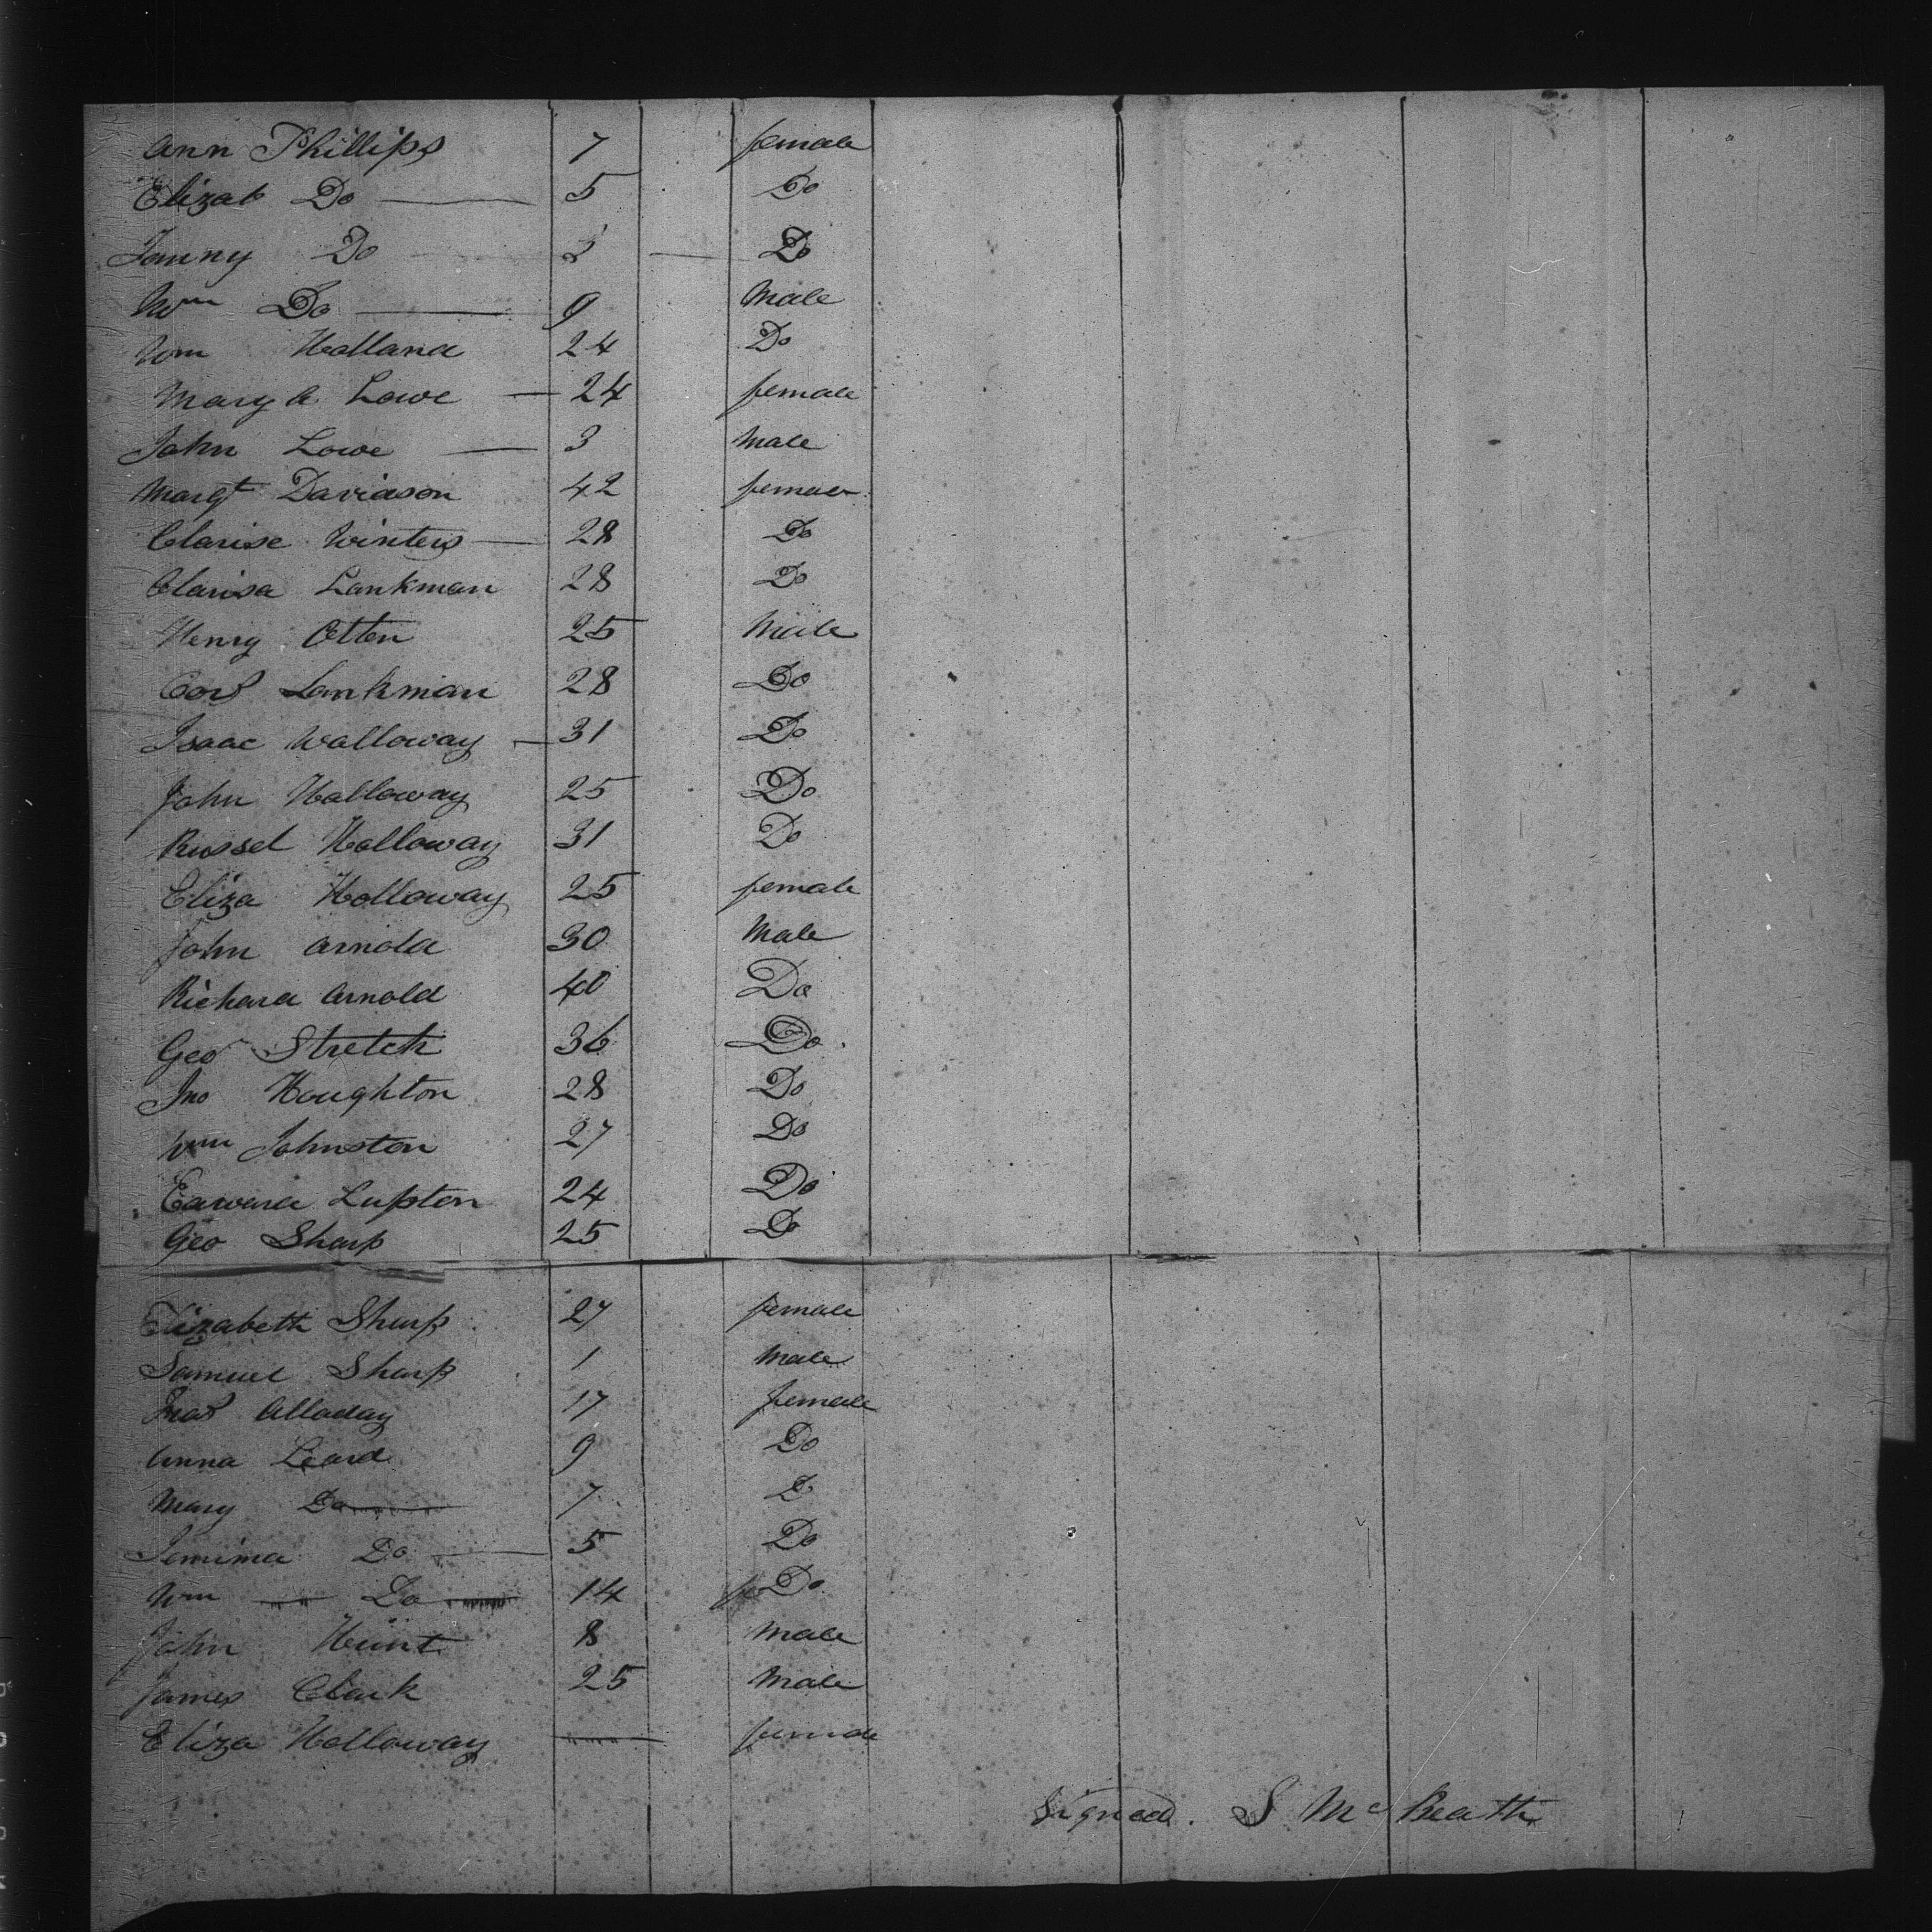 Ann Phillips 7 female
Elizab Do 5 Do
Fanny Do 2 Do
Wm Do 9 Male
Wm Holland 24 Do
Mary A Lowe 24 female
John Lowe 3 Male
Margt Davidson 42 female
Clarise Winters 28 Do
Clarisa Lankman 28 Do
Henry Otten 25 Male
Lankman 28 Do
Isaac Walloway 31 Do
John Holloway 25 Do
Russel Holloway 31 Do
Eliza Holloway 25 female
John Arnold 30 Male
Richard Arnold 40 Do
Geo Stretch 36 Do
Jno Houghton 28 Do
Wm Johnston 27 Do
Edward Lupton 24 Do
Geo Sharp 25 Do
Elizabeth Sharp 27 female
Samuel Sharp 1 Male
Alladay 17 female
Anna Leard 9 Do
Mary Do 7 Do
Jemima Do 5 Do
Wm Do 14 Do
John Hunt 8 Male
James Clark 25 Male
Eliza Holloway female
Signed. S McBeath